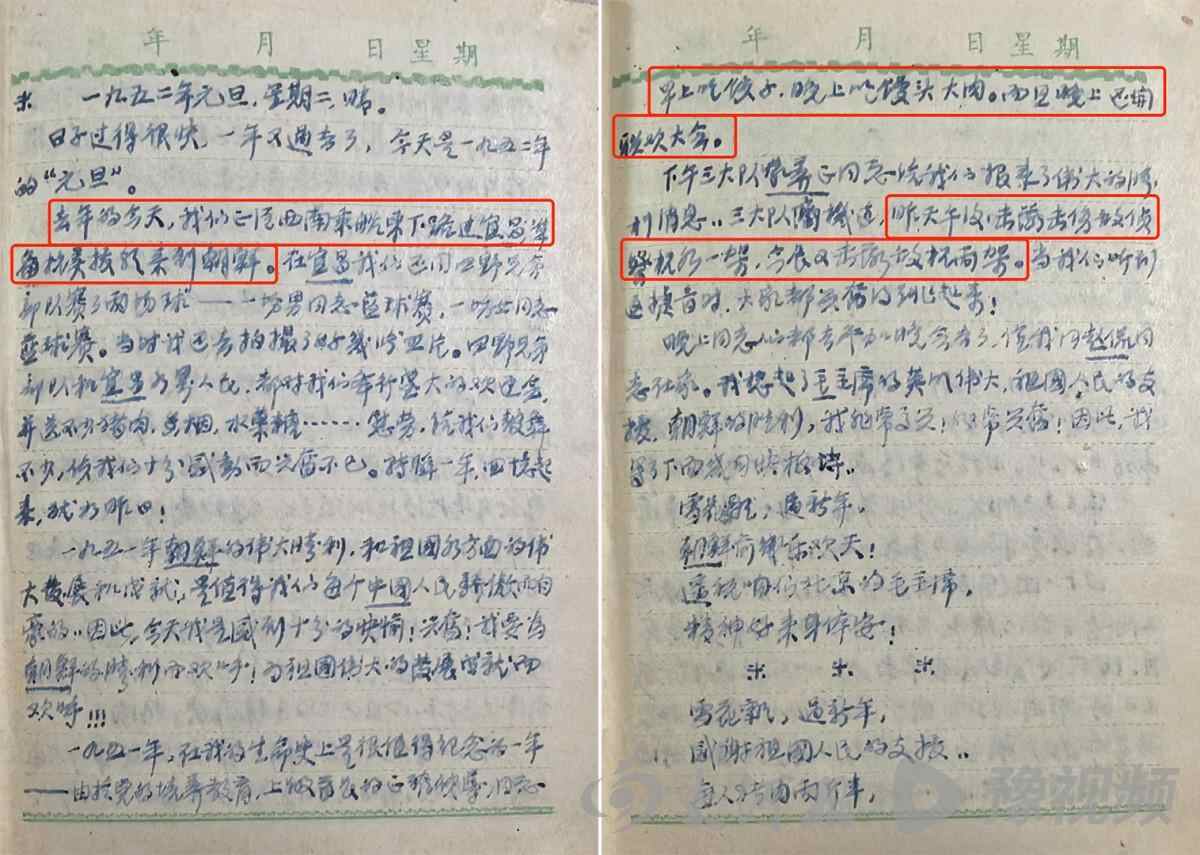 年 月 日 星 期
※ 一九五二年元旦，星期二，晴。
日子过得很快，一年又过去了，今天是一九五二年
的“元旦”。
去年的今天，我们正从西南乘船东下路过宜昌准
备抗美援朝来到朝鲜。在宜昌我们还同四野兄弟
部队赛了两场球——一场男同志篮球赛，一场女同志
篮球赛。当时我还去拍摄了好几张照片。四野兄弟
部队和宜昌各界人民，都对我们举行盛大的欢迎会，
并送不少猪肉，香烟，水菓糖……慰劳，给我们鼓舞
不少，使我们十分感动而兴奋不已。转瞬一年，回忆起
来，犹如昨日！
一九五一年朝鲜的伟大胜利，和祖国各方面的伟
大发展和成就，是值得我们每个中国人民骄傲和自
豪的..因此，今天我是感到十分的快愉！兴奋！我要为
朝鲜的胜利而欢呼！为祖国伟大的发展成就而
欢呼!!!
一九五一年，在我的生命史上是很值得纪念的一年
——由于党的培养教育，上级首长的正确领导，同志
年 月 日 星 期
早上吃饺子，晚上吃馒头大肉。而且晚上还搞
联欢大会。
下午三大队 同志给我们报来了伟大的胜
利消息..三大队 ，昨天午夜击落击伤敌侦
察机各一架，今晨又击落敌机两架。当我们听到
这 时，大家都兴奋的 起来！
晚上同志们都去参加晚会去了，值我同赵侃同
志在家。我想起了毛主席的英明伟大，祖国人民的支
援，朝鲜的胜利，我非常高兴！非常兴奋！因此，我
写了下面 诗..
雪花飘，过新年，
朝鲜前线乐欢天！
遥祝咱们北京的毛主席，
精神好来身体安！
※ ※ ※
雪花飘，过新年，
感谢祖国人民的支援..
每人 肉两斤半，
豫视频